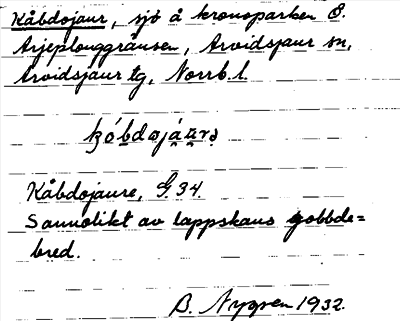 Kåbdojaur, sjö å kronoparken Ö.
Arjeplouggränsen, Arvidsjaur sn,
Arvidsjaur tg, Norrb. l.
Kåbdojaure, G. 34.
Sannolikt av lappskans gobbde=
bred.
B. Nygren 1932.